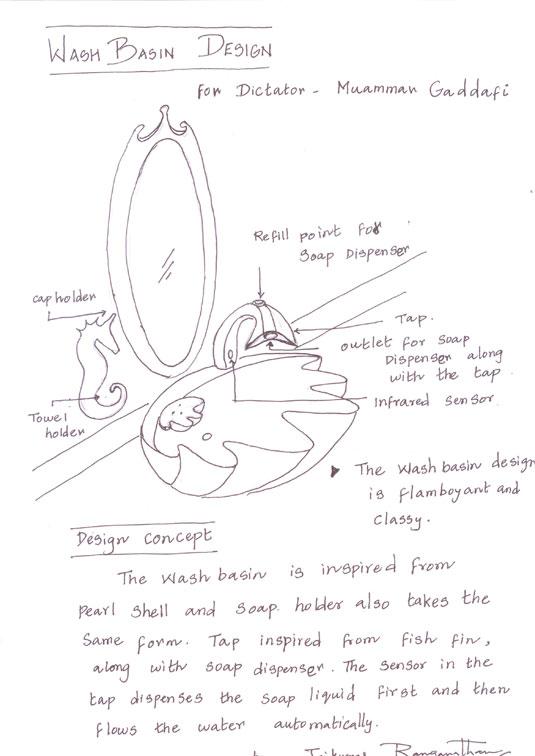 WASH BASIN DESIGN
for Dictator - Muamman Gaddafi
Refill point for
Soap Dispenser
cap holder
Tap.
outlet for soap
Dispenser along
with the tap
Infrared sensor
Towel
holder
The Wash basin design
is flamboyant and
classy.
Design concept
The Wash basin is inspired from
pearl shell and soap holder also takes the
same form. Tap inspired from fish fin,
along with soap dispenser. The sensor in the
tap dispenses the soap liquid first and then
flows the water automatically.